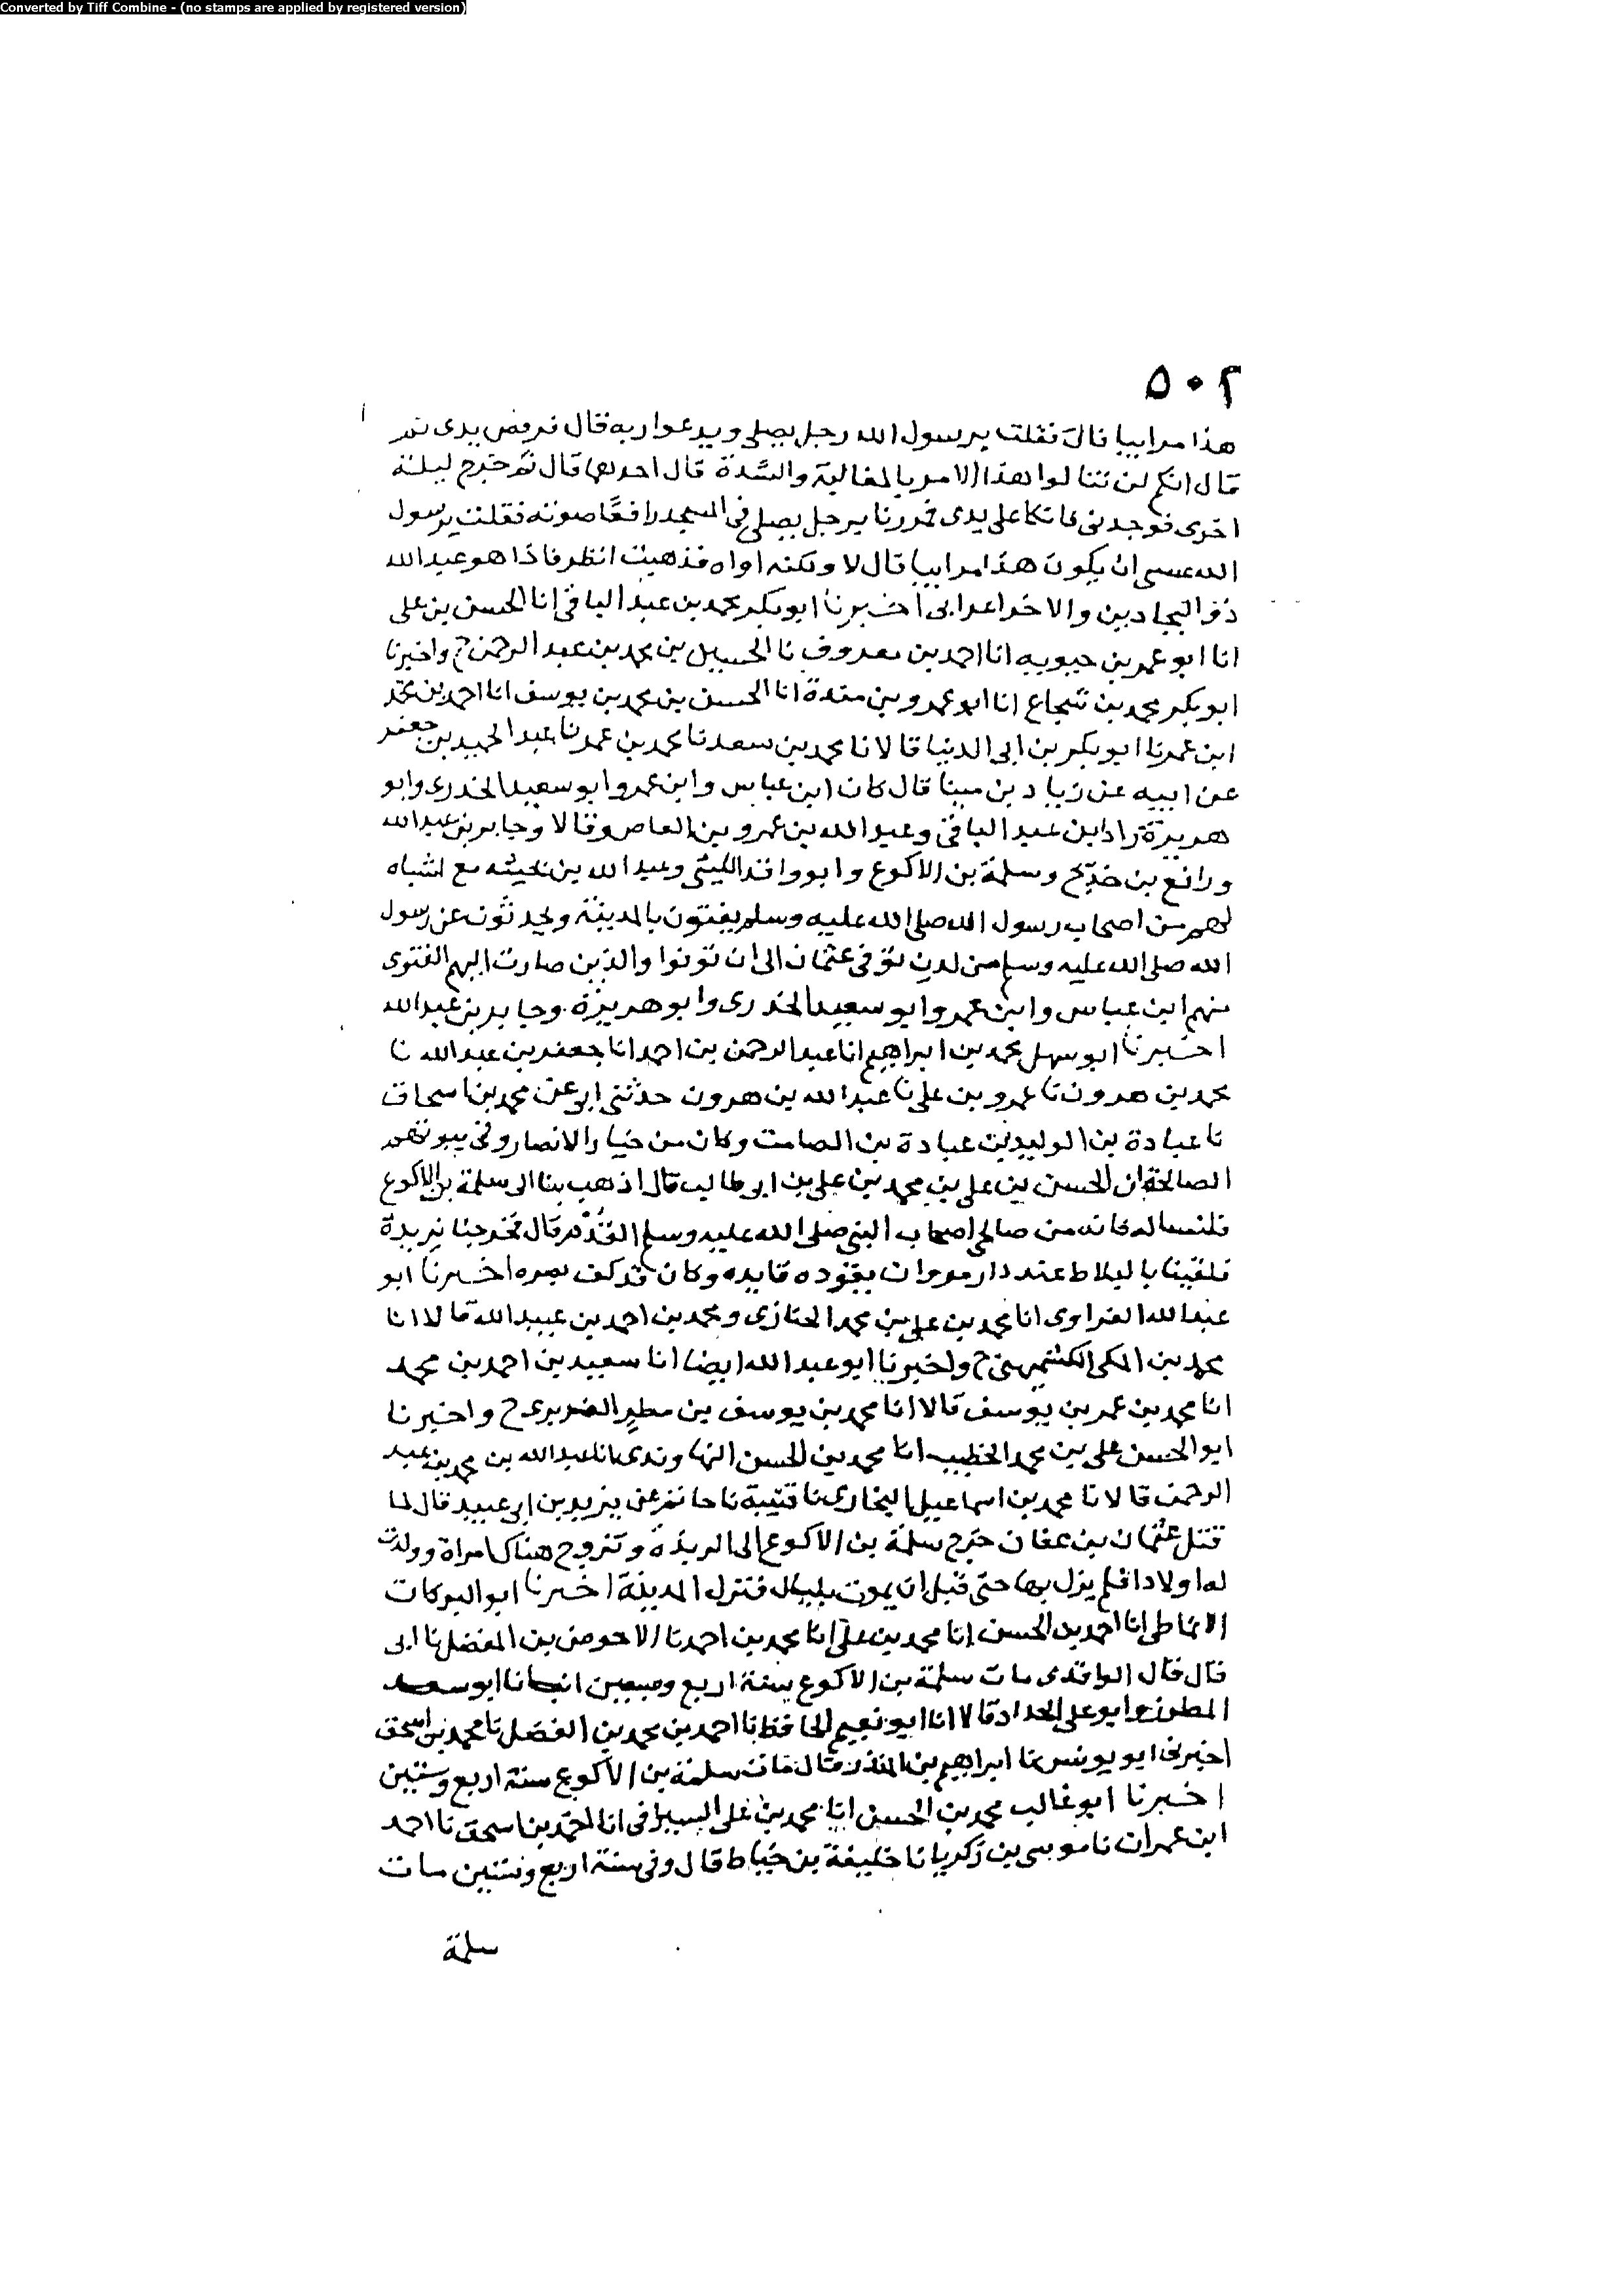 Converted by Tiff Combine - (no stamps are applied by registered version)
٥٠٢
هذا مراييا قال فقلت يرسول الله رجل يصلي ويدعوا ربه قال فرفض يدى ثم
قال انكم لن تنالوا هذا الامر بالمغالبة والشدة قال احدها قال ثم خرج ليلة
اخرى فوجدنى فاتكا على يدى فمررنا برجل يصلي فى المسجد رافعًا صوته فقلت يرسول
الله عسى ان يكون هذا مراييا قال لا ولكنه اواه فذهبت انظر فاذا هو عبد الله
ذو البجادين والاخر اعرابى اخبرنا ابو بكر محمد بن عبد الباقى انا الحسن بن على
انا ابو عمر بن حيوييه انا احمد بن معروف نا الحسين بن محمد بن عبد الرحمن ح واخبرنا
ابو بكر محمد بن شجاع انا ابو عمرو بن مندة انا الحسن بن محمد بن يوسف انا احمد بن محمد
ابن عمر نا ابو بكر بن ابى الدنيا قالا نا محمد بن سعد نا محمد بن عمر نا عبد الحميد بن جعفر
عن ابيه عن زياد بن مينا قال كان ابن عباس وابن عمر وابو سعيد الخدرى وابو
هريرة زاد ابن عبد الباقى وعبد الله بن عمرو بن العاص وقالا وجابر بن عبد الله
ورافع بن خديج وسلمة بن الاكوع وابو واقد الليثى وعبد الله بن بحينه مع اشباه
لهم من اصحاب رسول الله صلى الله عليه وسلم يفتون بالمدينة ويحدثون عن رسول
الله صلى الله عليه وسلم من لدن توفى عثمان الى ان توفوا والذين صارت اليهم الفتوى
منهم ابن عباس وابن عمر وابو سعيد الخدرى وابو هريرة وجابر بن عبد الله
اخبرنا ابو سهل محمد بن ابراهيم انا عبد الرحمن بن احمد انا جعفر بن عبد الله نا
محمد بن هرون نا عمرو بن على نا عبد الله بن هرون حدثنى ابى عن محمد بن اسحاق
نا عبادة بن الوليد بن عبادة بن الصامت وكان من خيار الانصار وفى بيوتهم
الصالحة ان الحسن بن على بن محمد بن على بن ابى طالب قال اذهب بنا الى سلمة بن الاكوع
فلنسـاله فانه من صالحى اصحاب النبى صلى الله عليه وسلم القدم قال فخرجنا نريدة
فلقينا بالبلاط عند دار مروان يقوده قايده وكان قد كف بصره اخبرنا ابو
عبد الله الفراوى انا محمد بن على بن محمد الخبازى ومحمد بن احمد بن عبيد الله قالا انا
محمد بن المكى الكشميهنى ح واخبرنا ابو عبد الله ايضا انا سعيد بن احمد بن محمد
انا محمد بن عمر بن يوسف قالا انا محمد بن يوسف بن مطر الفربرى ح واخبرنا
ابو الحسن على بن محمد الخطيب انا محمد بن الحسن النهاوندى انا عبد الله بن محمد بن عبد
الرحمن قالا نا محمد بن اسماعيل البخارى نا قتيبة نا حاتم عن يزيد بن ابى عبيد قال لما
قتل عثمان بن عفان خرج سلمة بن الاكوع الى الربذة وتزوج هناك امراة وولدت
له اولادا فلم يزل بها حتى قبل ان يموت بليال فنزل المدينة اخبرنا ابو البركات
الانماطى انا احمد بن الحسن انا محمد بن على انا محمد بن احمد نا الاحوص بن المفضل نا ابى
قال قال الواقدى مات سلمة بن الاكوع سنة اربع وسبعين انبانا ابو سعد
المطرز وابو على الحداد قالا انا ابو نعيم الحافظ نا احمد بن محمد بن الفضل نا محمد بن اسحق
اخبرنى ابو يونس نا ابراهيم بن المنذر قال مات سلمة بن الاكوع سنة اربع وستين
اخبرنا ابو غالب محمد بن الحسن انا محمد بن على السيرافى انا احمد بن اسحق نا احمد
ابن عمران نا موسى بن زكريا نا خليفة بن خياط قال وفى سنة اربع وستين مات
سلمة